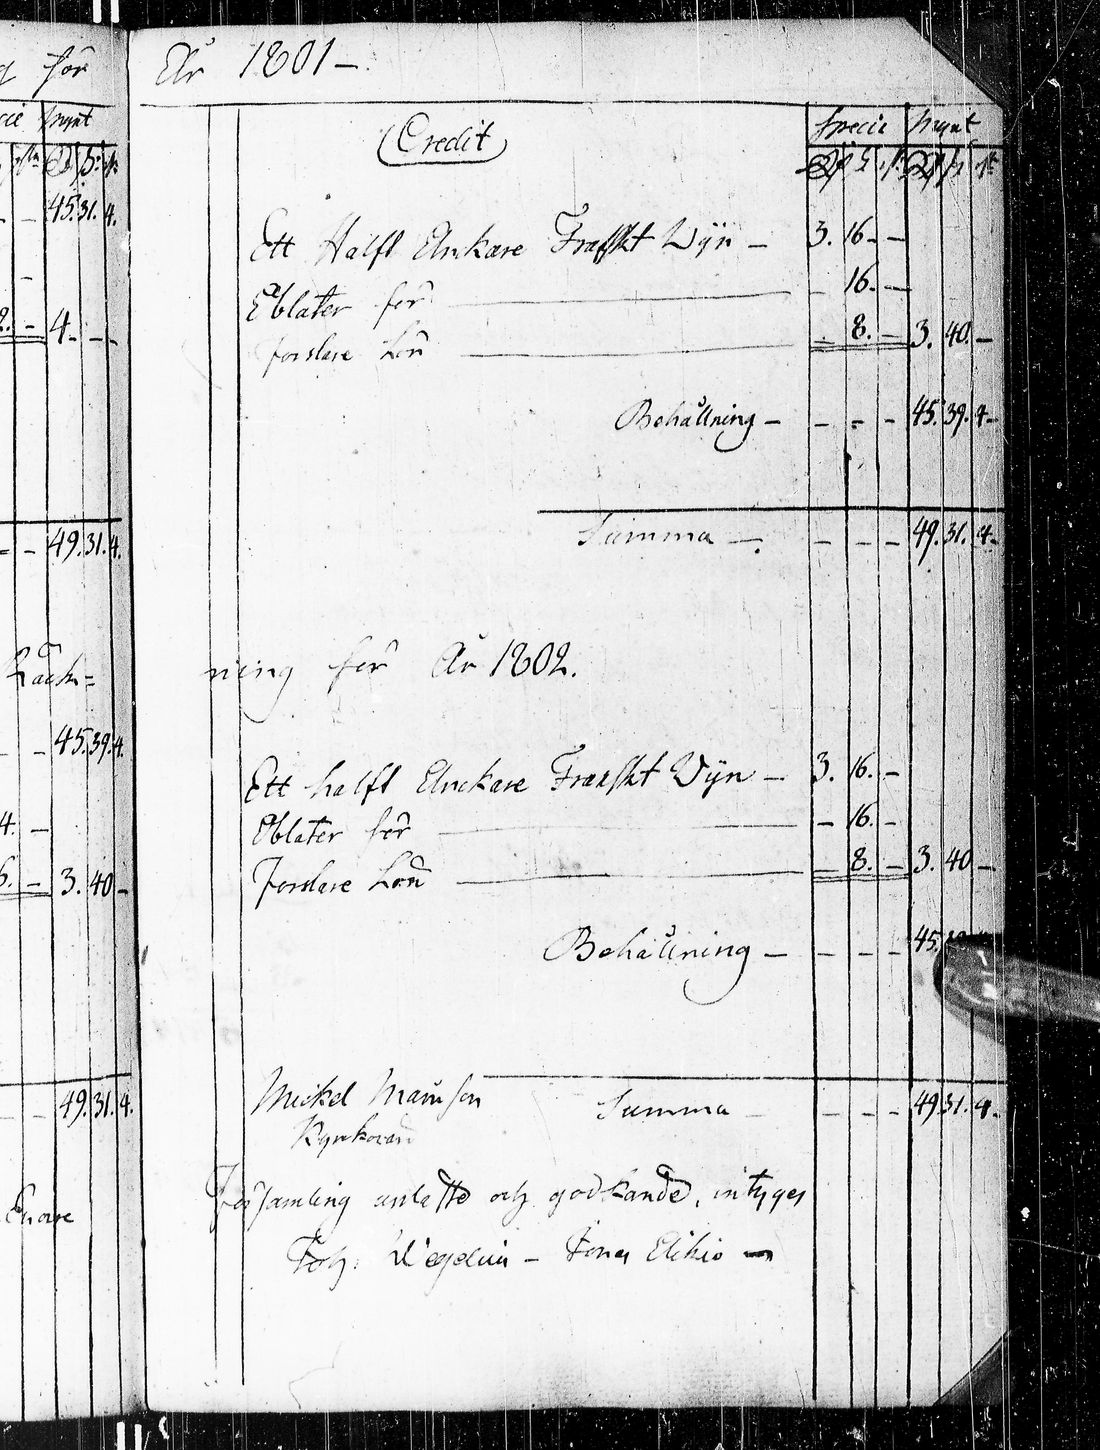 för År 1801 –
Credit
Specie Mynt
45. 31. 4.
Ett Halft Anckare Franskt Wÿn – 3. 16. –
Oblater för – 16. –
4. – –
Forslare Lön – 8. – 3. 40. –
Behållning – – – – 45. 39. 4.
49. 31. 4.
Summa – – – – 49. 31. 4.
Räck=
ning för År 1802.
45. 39. 4.
Ett halft Anckare Franskt Wÿn – 3. 16. –
4. –
Oblater för – 16. –
3. 40 –
Forslare Lön – 8. – 3. 40 –
Behållning – – – – 45.
49. 31. 4.
Mickel Mårtensson Summa – – – – 49. 31. 4.
Kyrkovärd
Församling upläste och godkände, intyger
Joh: Wegelius – Jonas Elikio –